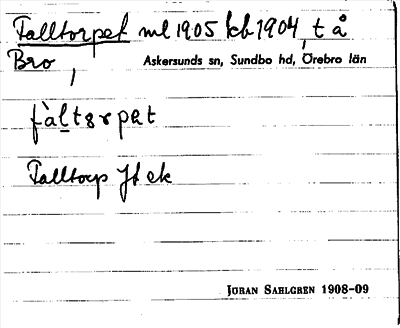 Talltorpet ml 1905 kb 1904, t å
Bro, Askersunds sn, Sundbo hd, Örebro län
fàltørpet
Talltorp Jt ek
JÖRAN SAHLGREN 1908-09